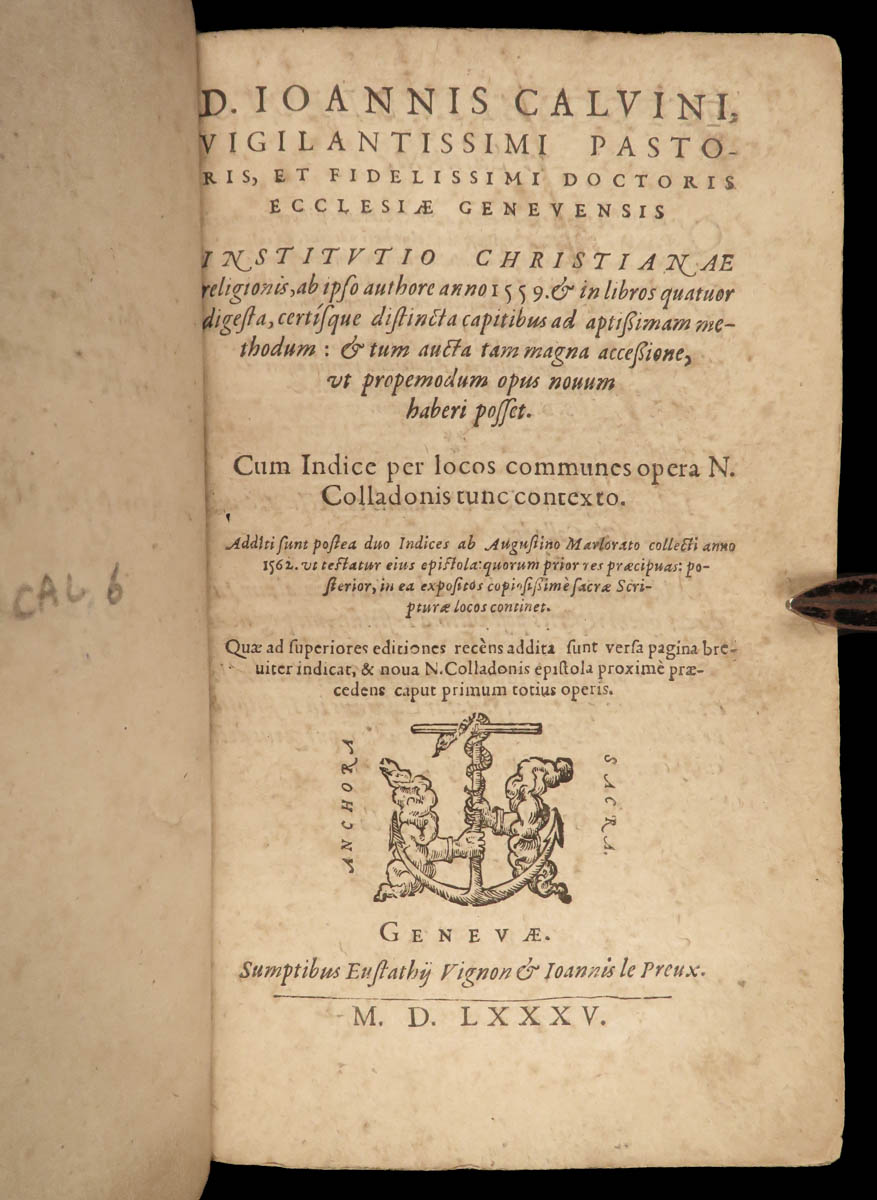 CAL. 6
D. IOANNIS CALVINI,
VIGILANTISSIMI PASTO-
RIS, ET FIDELISSIMI DOCTORIS
ECCLESIÆ GENEVENSIS
INSTITVTIO CHRISTIANAE
religionis, ab ipſo authore anno 1559. & in libros quatuor
digeſta, certíſque diſtincta capitibus ad aptißimam me-
thodum : & tum aucta tam magna acceßione,
vt propemodum opus nouum
haberi poſſet.
Cum Indice per locos communes opera N.
Colladonis tunc contexto.
Additi ſunt poſtea duo Indices ab Auguſtino Marlorato collecti anno
1562. vt teſtatur eius epiſtola: quorum prior res præcipuas: po-
ſterior, in ea expoſitos copioſißimè ſacræ Scri-
pturæ locos continet.
Quæ ad ſuperiores editiones recèns addita ſunt verſa pagina bre-
uiter indicat, & noua N. Colladonis epiſtola proximè præ-
cedens caput primum totius operis.
ANCHORA
SACRA.
GENEVÆ.
Sumptibus Euſtathij Vignon & Ioannis le Preux.
M. D. LXXXV.